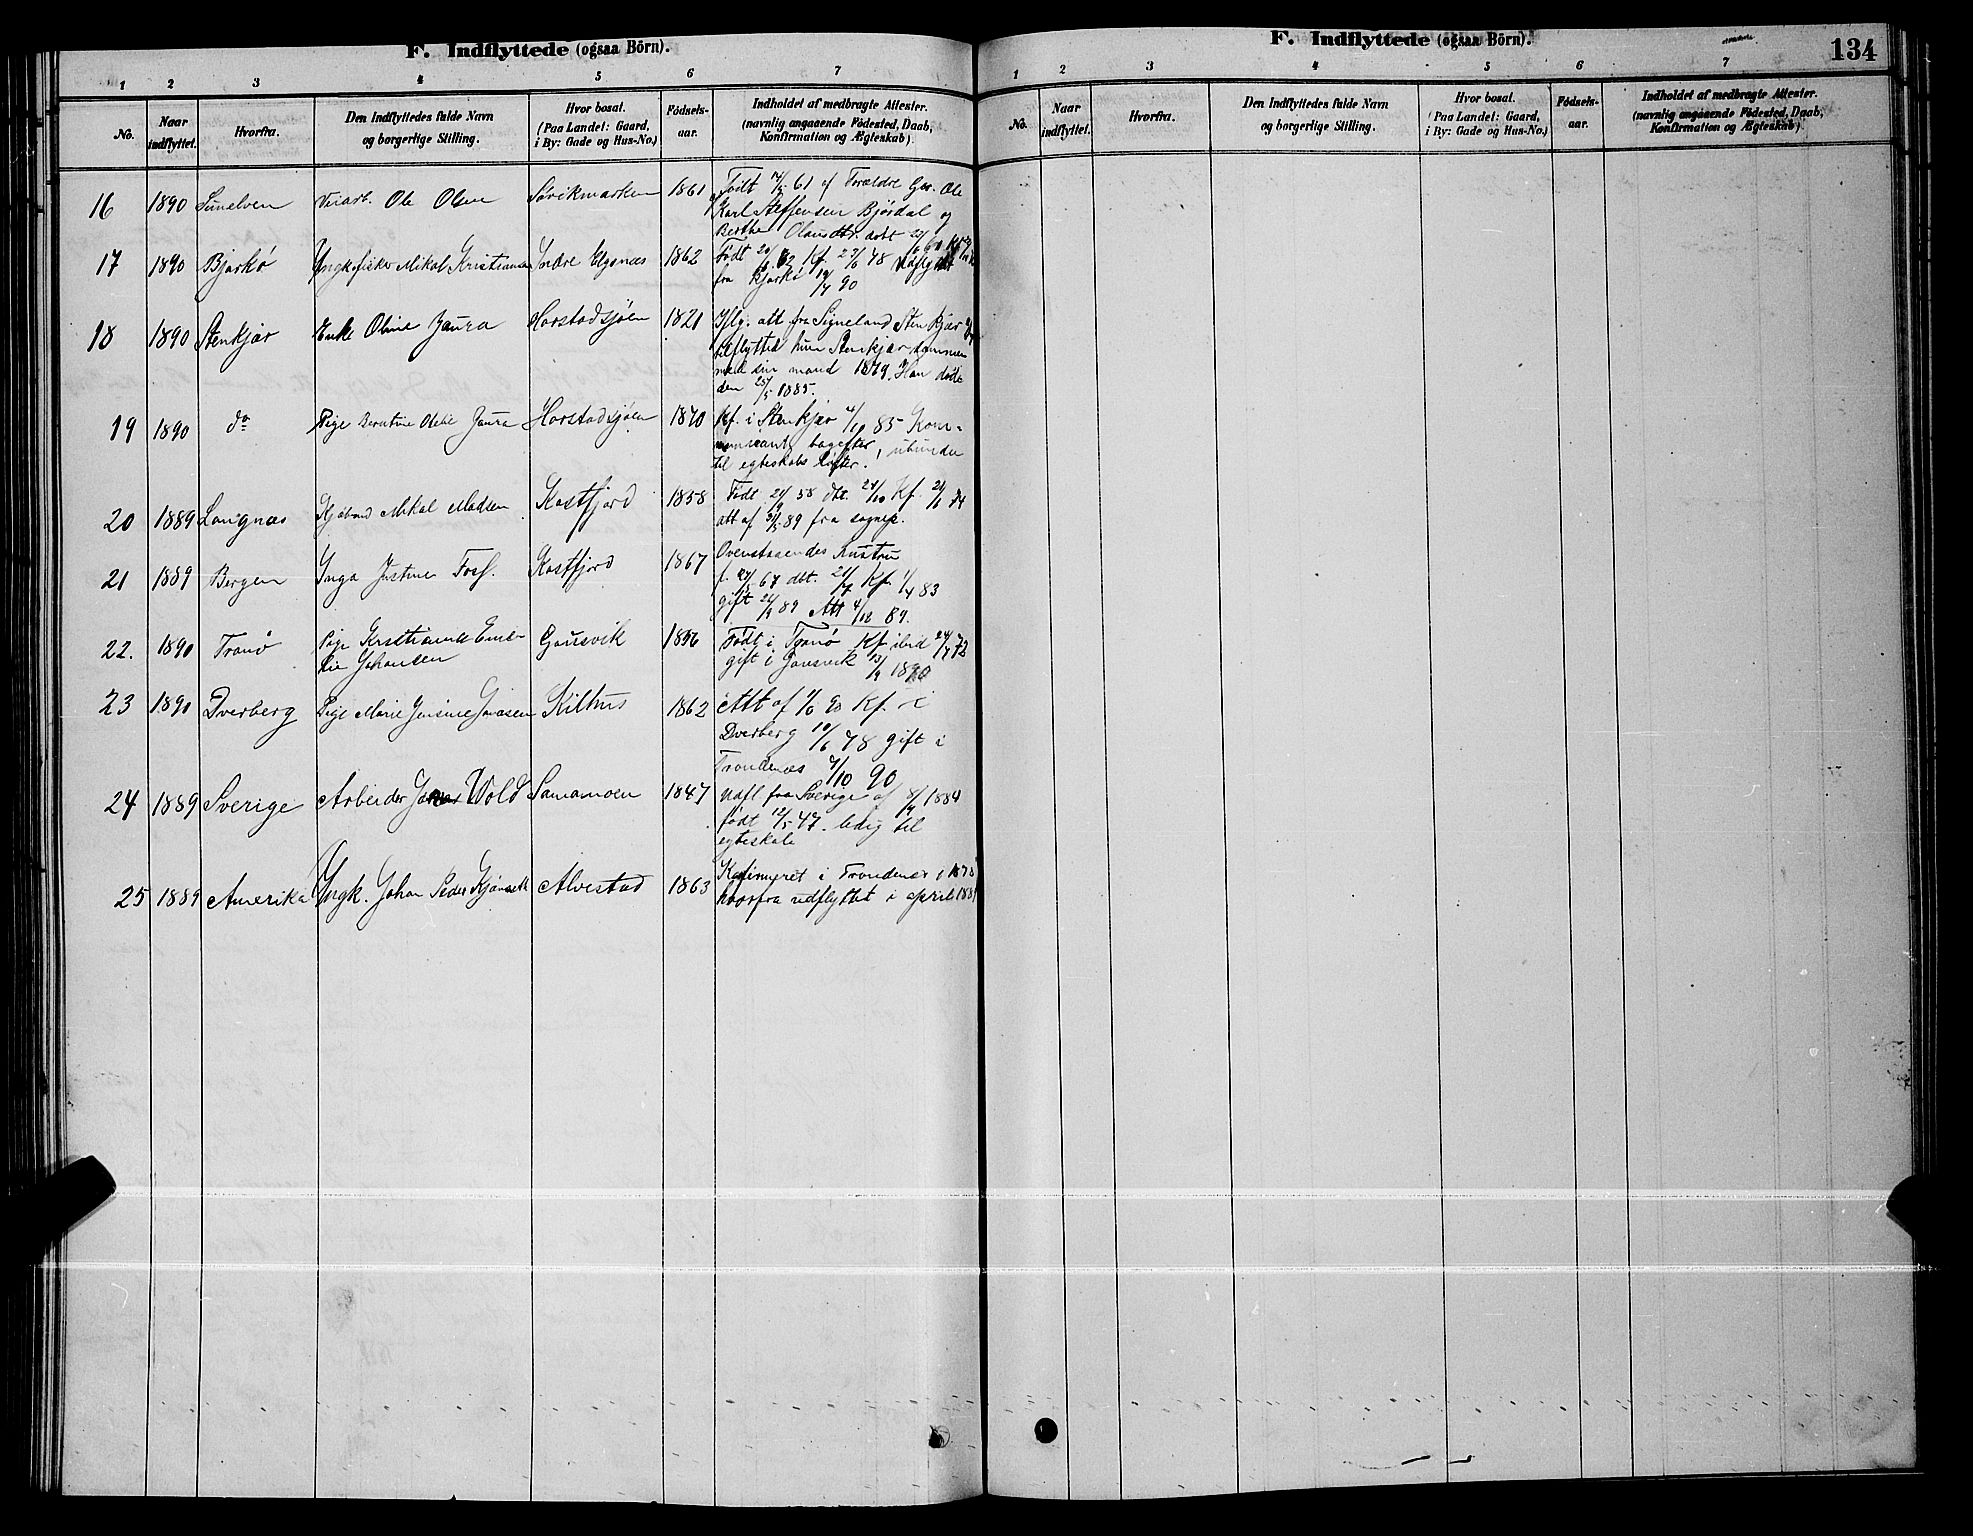 F. Indflyttede (ogsaa Börn).
1 2 3 4 5 6 7
No. Naar indflyttet. Hvorfra. Den Indflyttedes fulde Navn og borgerlige Stilling. Hvor bosat. (Paa Landet: Gaard, i By: Gade og Hus-No.) Födsels-aar. Indholdet af medbragte Attester. (navnlig angaaende Födested, Daab, Konfirmation og Ægteskab).
16 1890 Sunelven Ole Olsen Sövikmarken 1861 Födt 61 af Forældre Ole
Karl Steffensen Bjørdal og
Berthe Olausdtr. döbt
17 1890 Bjarkö Ungk fisker Mikal Kristiansen Indre Elgsnæs 1862 Födt 62 Kf. 23/6 78 udflyttet
fra Bjarkö 90
18 1890 Stenkjær Enke Oline Zaura Harstadsjöen 1821 Iflg. att fra Stenkjær
tilflytted hun Stenkjær sammen
med sin mand 1879. Han døde
den 25/5 1885.
19 1890 do Pige Zaura Harstadsjöen 1870 Kf. i Stenkjær 4/10 85 Kom-
bagefter, ubunden
til egteskabs löfter.
20 1889 Mikal Madsen Kastfjord 1858 Födt 58 dbt. 24/10 Kf.
att af 31/5 89 fra sognepr.
21 1889 Bergen Inga Justine Kastfjord 1867 Ovenstaaendes hustru
f. 67 dbt. Kf. 1/4 83
gift 89 Att 4/12 89.
22. 1890 Tranö Pige Kristianne Emi-
lie Johansen Gausvik 1856 Födt i Tranö Kf ibid 72
gift i Gausvik 1890
23 1890 Dverberg Pige Marie Jensine Kilhus 1862 Att af 90 Kf. i
Dverberg 78 gift i
Trondenes /10 90
24 1889 Sverige Arbeider Jonas Wold Samamoen 1847 udfl fra Sverige af 1884
födt 12/5 47. ledig til
egteskab
25 1889 Amerika Ungk. Johan Peder Alvestad 1863 Konfirmeret i Trondenes
hvorfra udflyttet i april
F. Indflyttede (ogsaa Börn).
134
1 2 3 4 5 6 7
No. Naar indflyttet. Hvorfra. Den Indflyttedes fulde Navn og borgerlige Stilling. Hvor bosat. (Paa Landet: Gaard, i By: Gade og Hus-No.) Födsels-aar. Indholdet af medbragte Attester. (navnlig angaaende Födested, Daab, Konfirmation og Ægteskab).